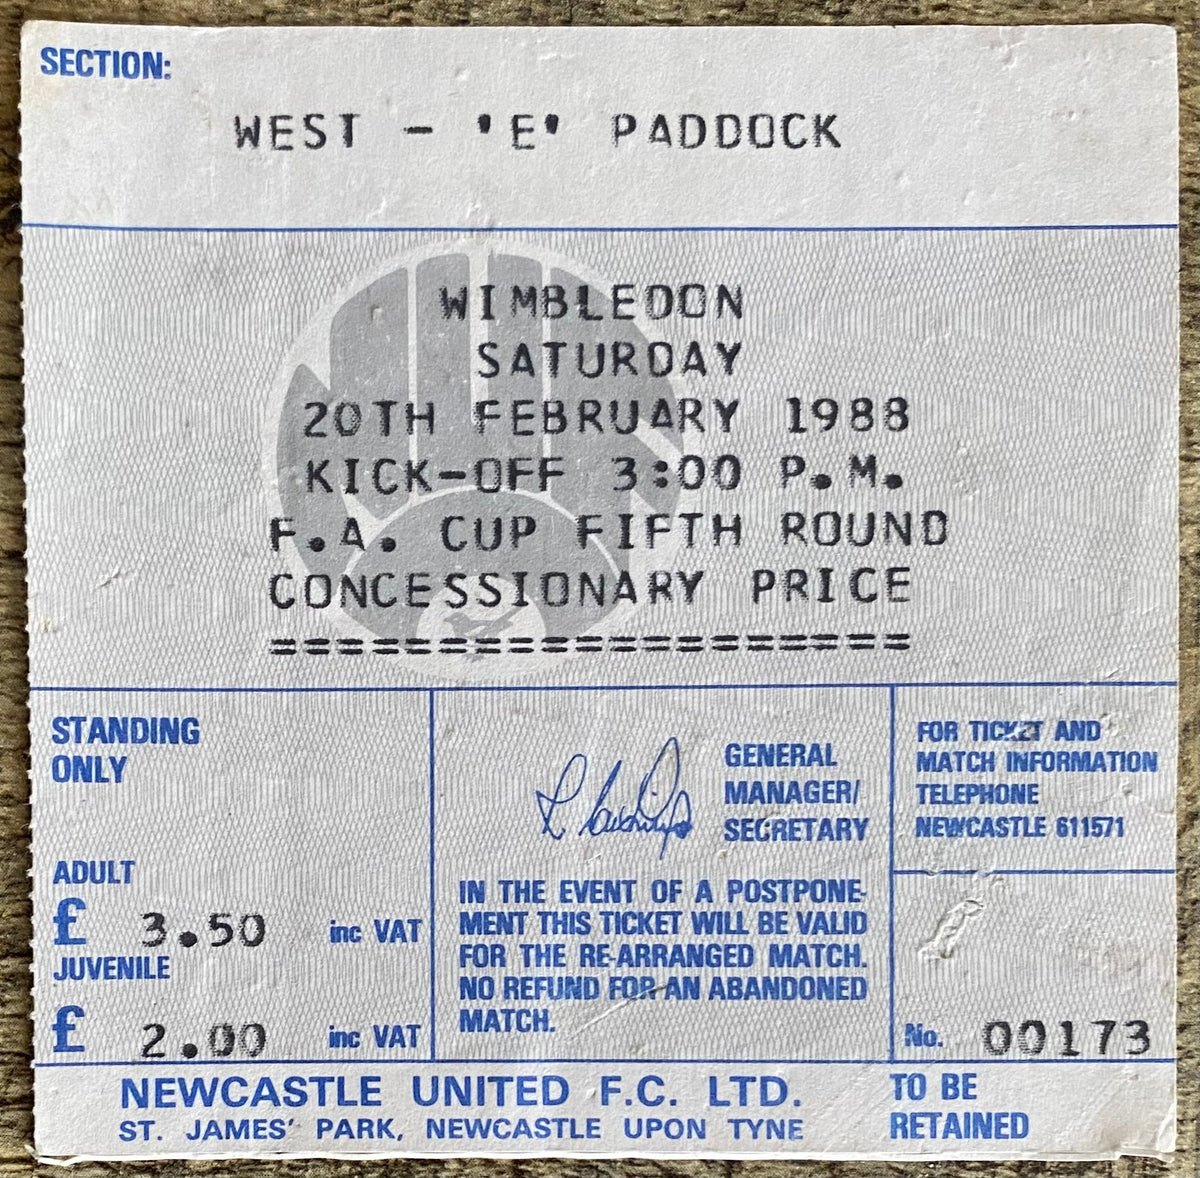 SECTION:
WEST - 'E' PADDOCK
WIMBLEDON
SATURDAY
20TH FEBRUARY 1988
KICK-OFF 3:00 P.M.
F.A. CUP FIFTH ROUND
CONCESSIONARY PRICE
====================
STANDING
ONLY
ADULT
£ 3.50 inc VAT
JUVENILE
£ 2.00 inc VAT
GENERAL
MANAGER/
SECRETARY
IN THE EVENT OF A POSTPONE-
MENT THIS TICKET WILL BE VALID
FOR THE RE-ARRANGED MATCH.
NO REFUND FOR AN ABANDONED
MATCH.
FOR TICKET AND
MATCH INFORMATION
TELEPHONE
NEWCASTLE 611571
No. 00173
NEWCASTLE UNITED F.C. LTD.
ST. JAMES' PARK, NEWCASTLE UPON TYNE
TO BE
RETAINED